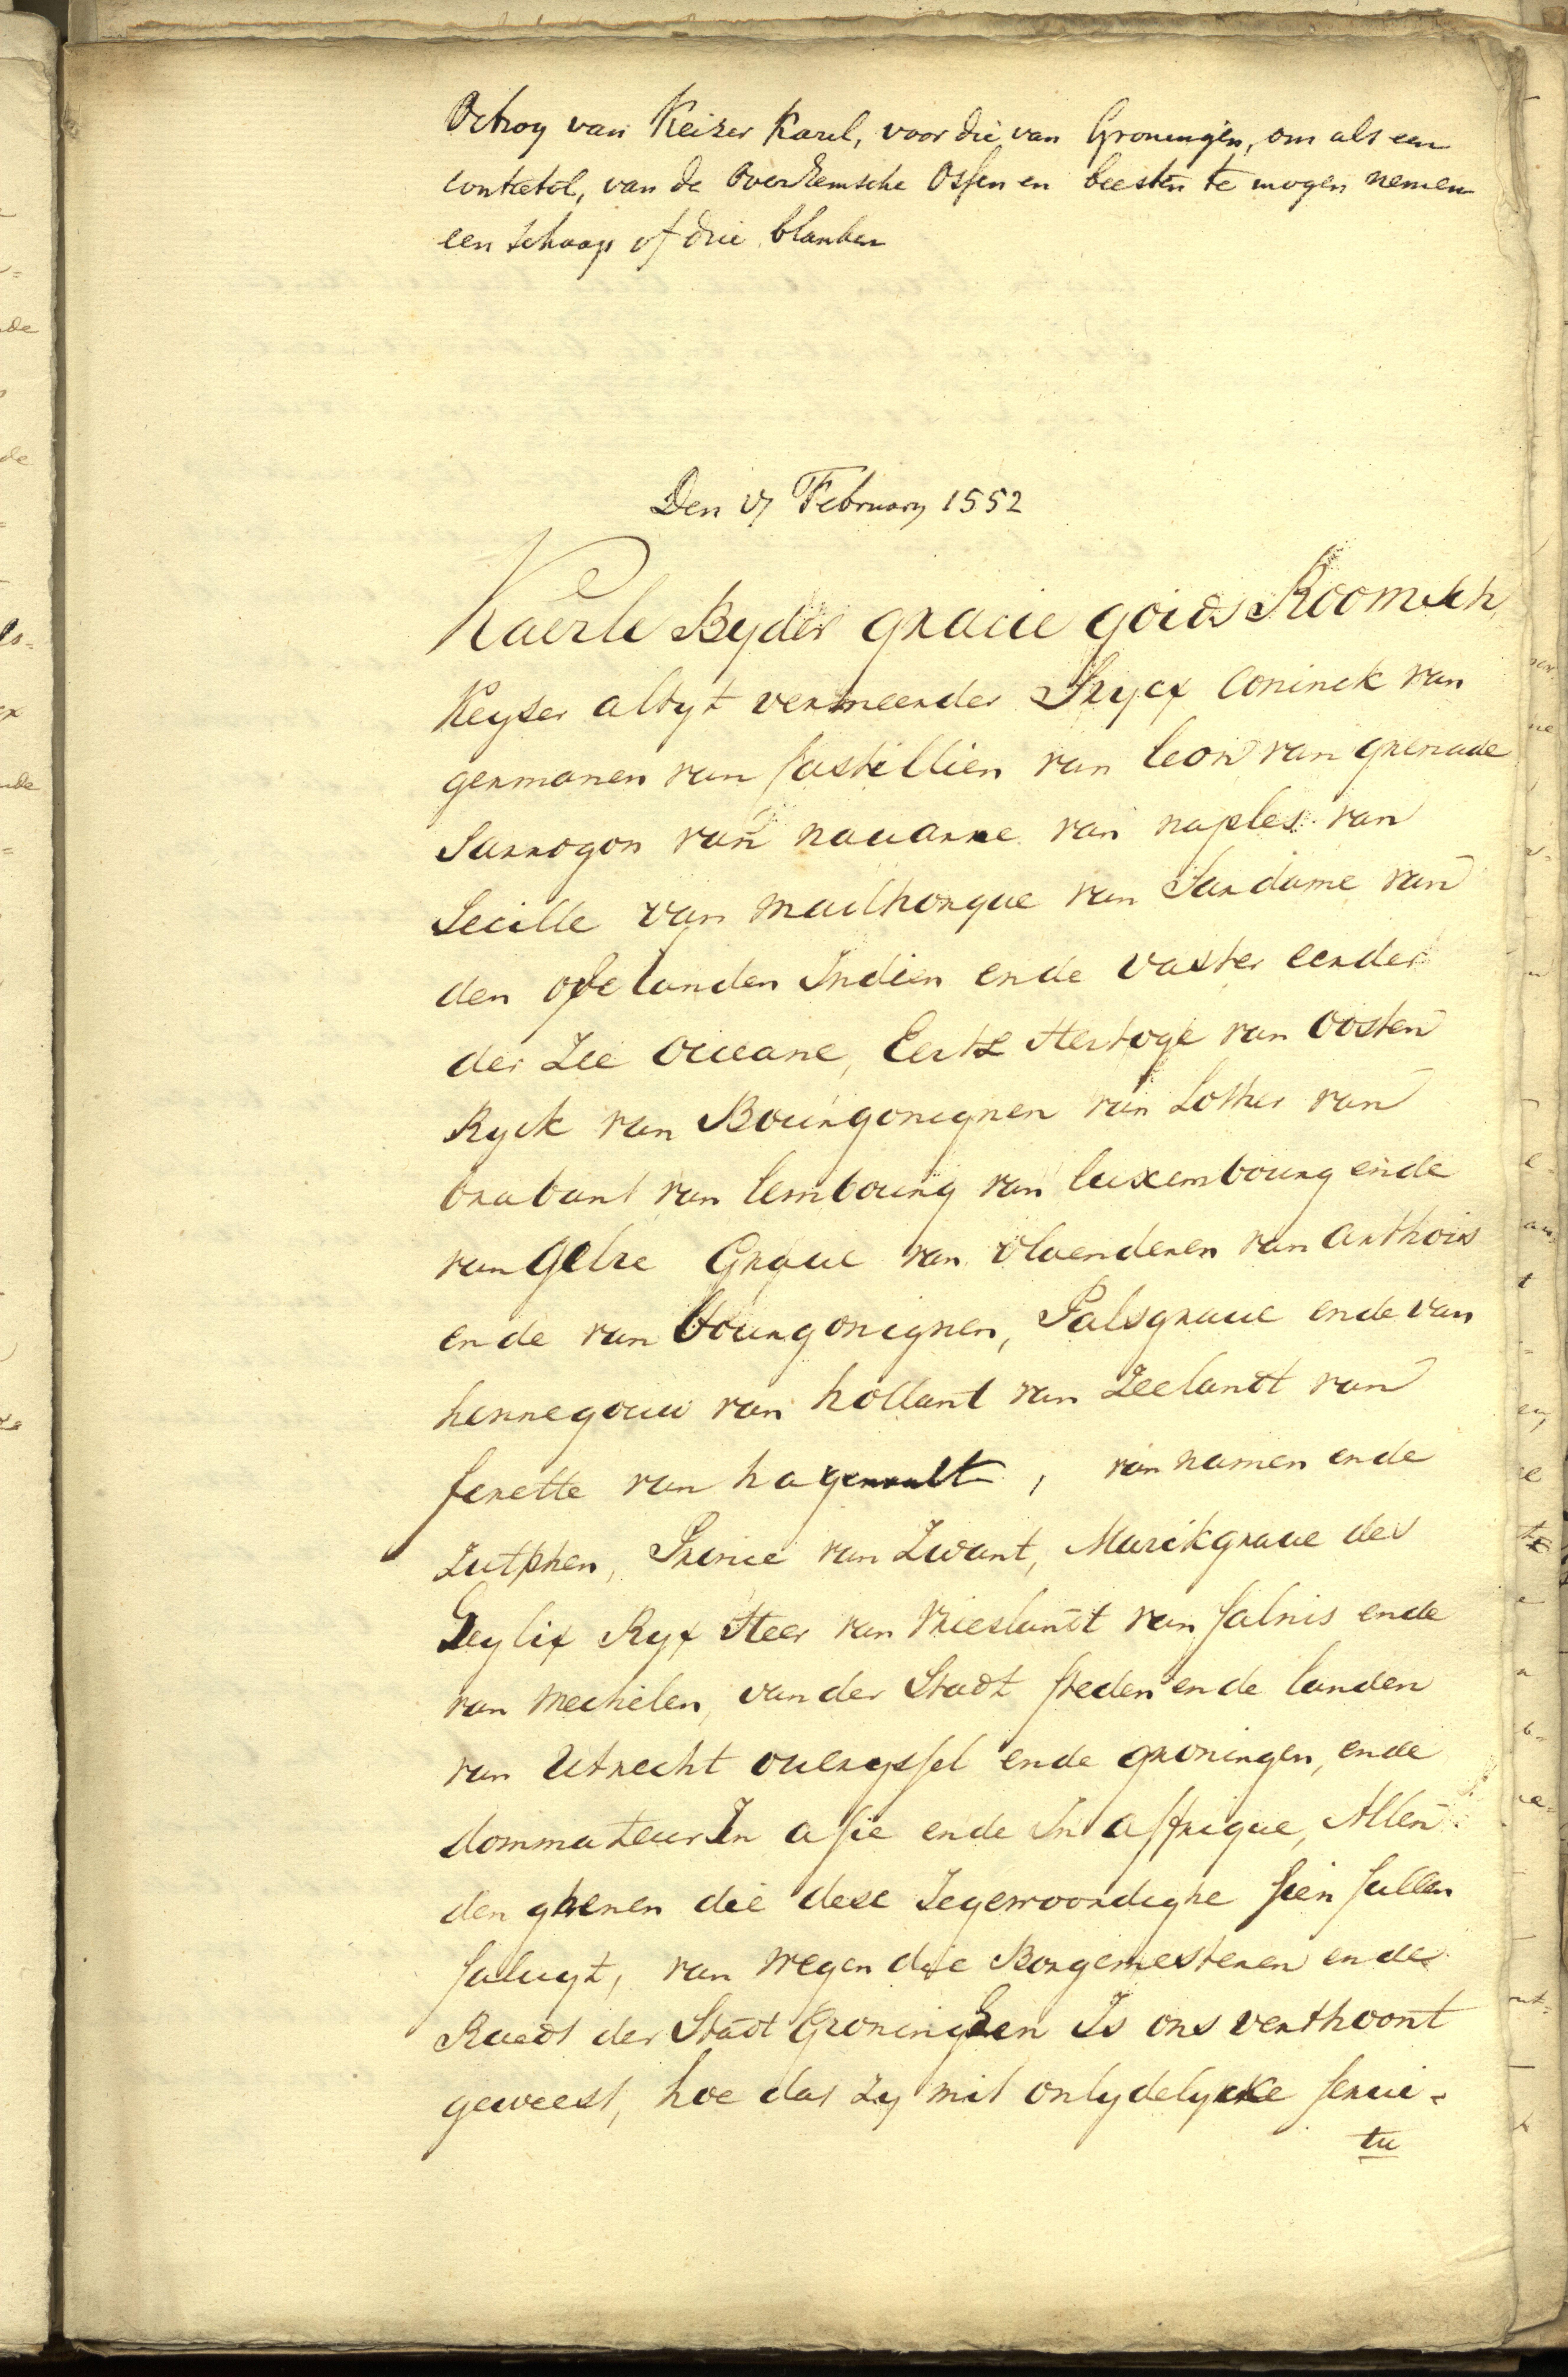 Octroy van Keizer Karel, voor die van Groningen, om als een
contratol, van de Overkemsche Ossen en beesten te mogen nemen
een Schaap of drie blanken
Den 17 February 1552
Kaerle Byder gracie goids Roomsch
Keyser altyt vermeerder Srycx Coninck van
germanen van Castillien van leon van grenade
Sarrogon van nauarre van naples van
Secille van Mailhorque van Sardame van
den eylanden Indien ende vaster eerder
der Zee Occeane, Eertz Hertoge van Oosten
Ryck van Bourgoingnen van Lother van
brabant van lembourg van luxembourg ende
van Gelre Graue van vlaenderen van Arthois
ende van bourgoingnen, Palsgraue ende van
hennegouw van hollant van Zeelandt van
ferette van hagenault, van namen ende
Zutphen, Prince van Zwant, Marckgraue des
Heylix Ryx Heer van Vrieslandt van salnis ende
van Mechelen, vander Stadt steden ende landen
van Utrecht oueryssel ende groningen, ende
dommateur In asie ende In affrique, Allen
den ghenen die dese Jegewoordighe sien sullen
saluyt, van wegen die Borgemesteren ende
Raedt der Stadt Groningen Is ons verthoont
geweest, hoe dat zy mit onlydelycke serui-
tu